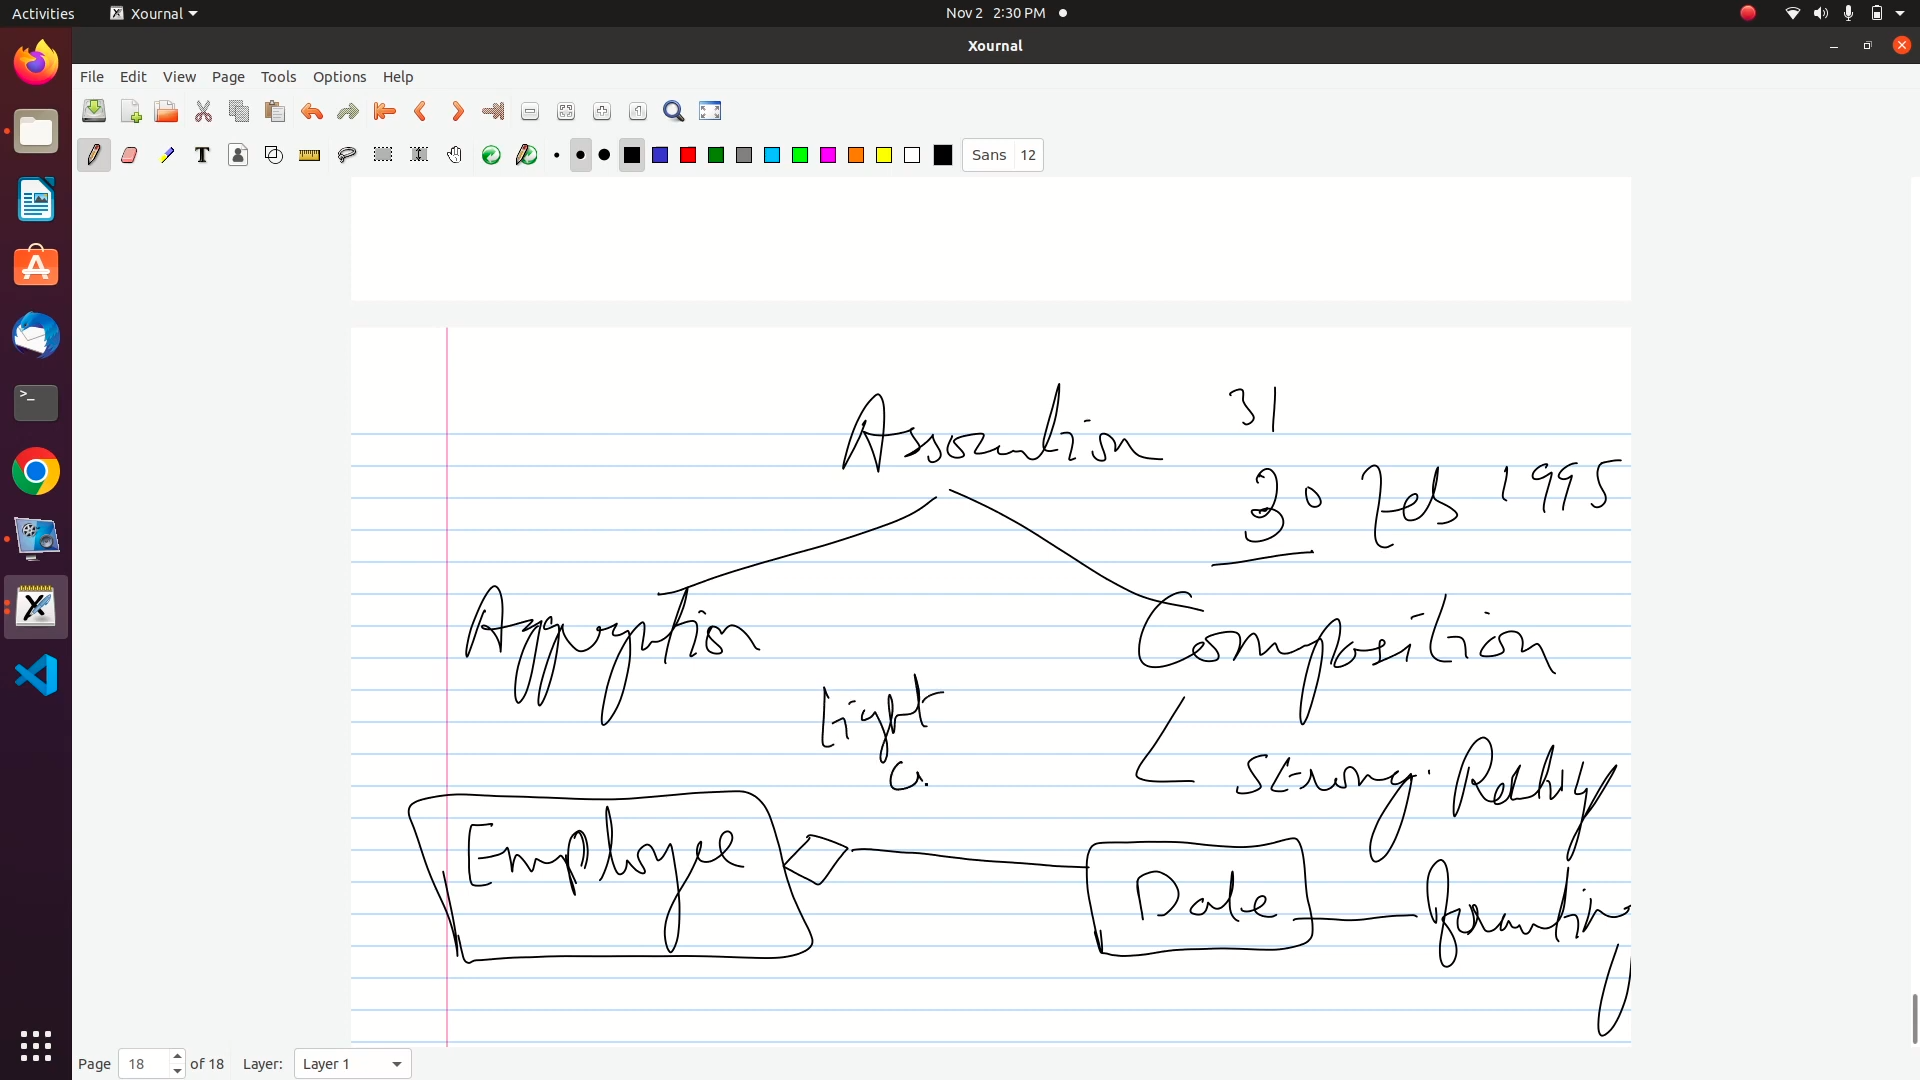 Activities Xournal Nov 2 2:30 PM
Xournal
File Edit View Page Tools Options Help
Sans 12
Association 31
30 Feb 1995
Aggregation Composition
Light
Strong.
Employee Date
Page 18 of 18 Layer: Layer 1